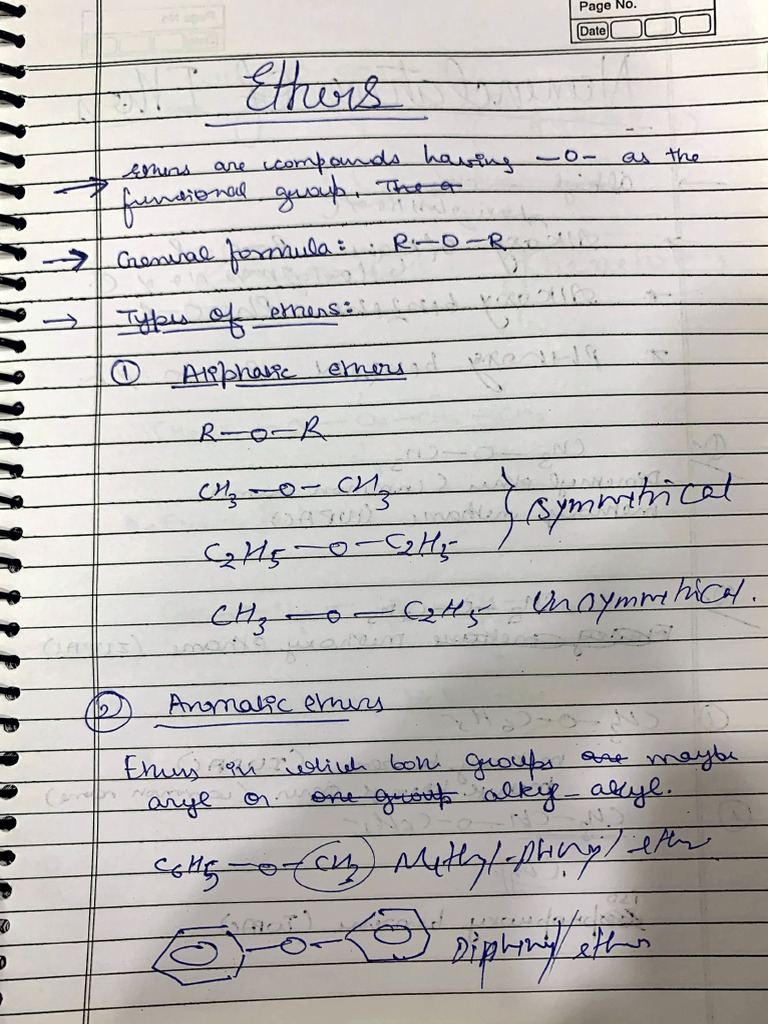 Page No.
Date
Ethers
→ Ethers are compounds having —O— as the
functional group. The a
→ General formula: R—O—R
→ Types of ethers:
① Aliphatic ethers
R—O—R
CH₃—O—CH₃
C₂H₅—O—C₂H₅ } Symmetrical
CH₃—O—C₂H₅ Unsymmetrical.
② Aromatic ethers
Ethers in which both groups are maybe
aryl or one group alkyl-aryl.
C₆H₅—O—CH₃ Methyl-phenyl ether
—O— Diphenyl ether